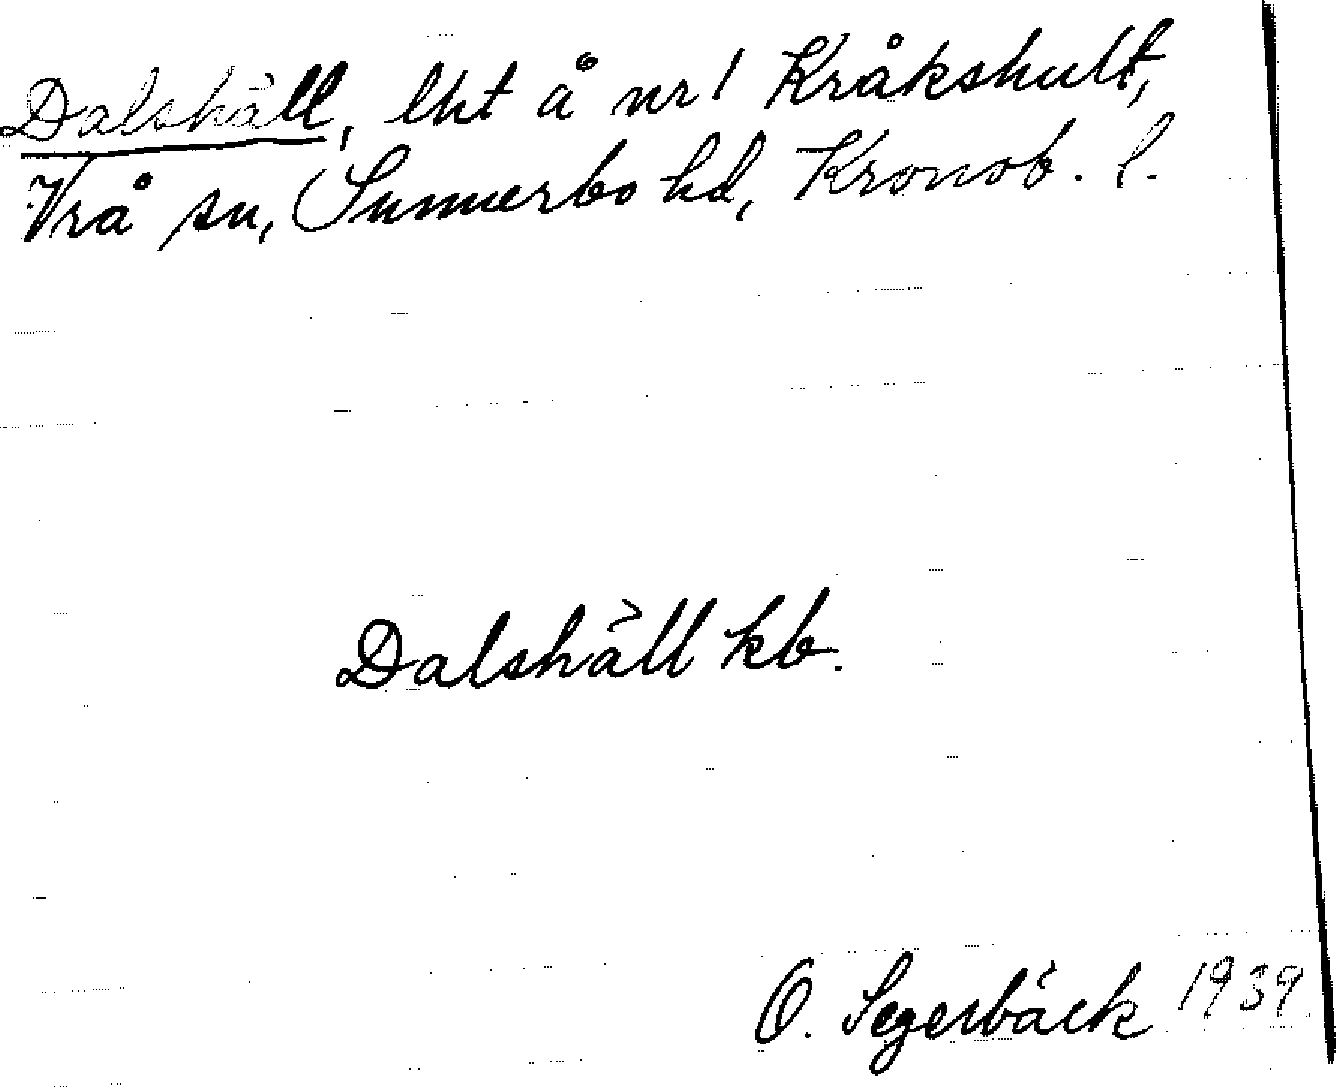 Dalshäll, lht å nr 1 Kråkshult,
Vrå sn, Sunnerbo hd, Kronob. l.
Dalshäll kb.
O. Segerbäck 1939